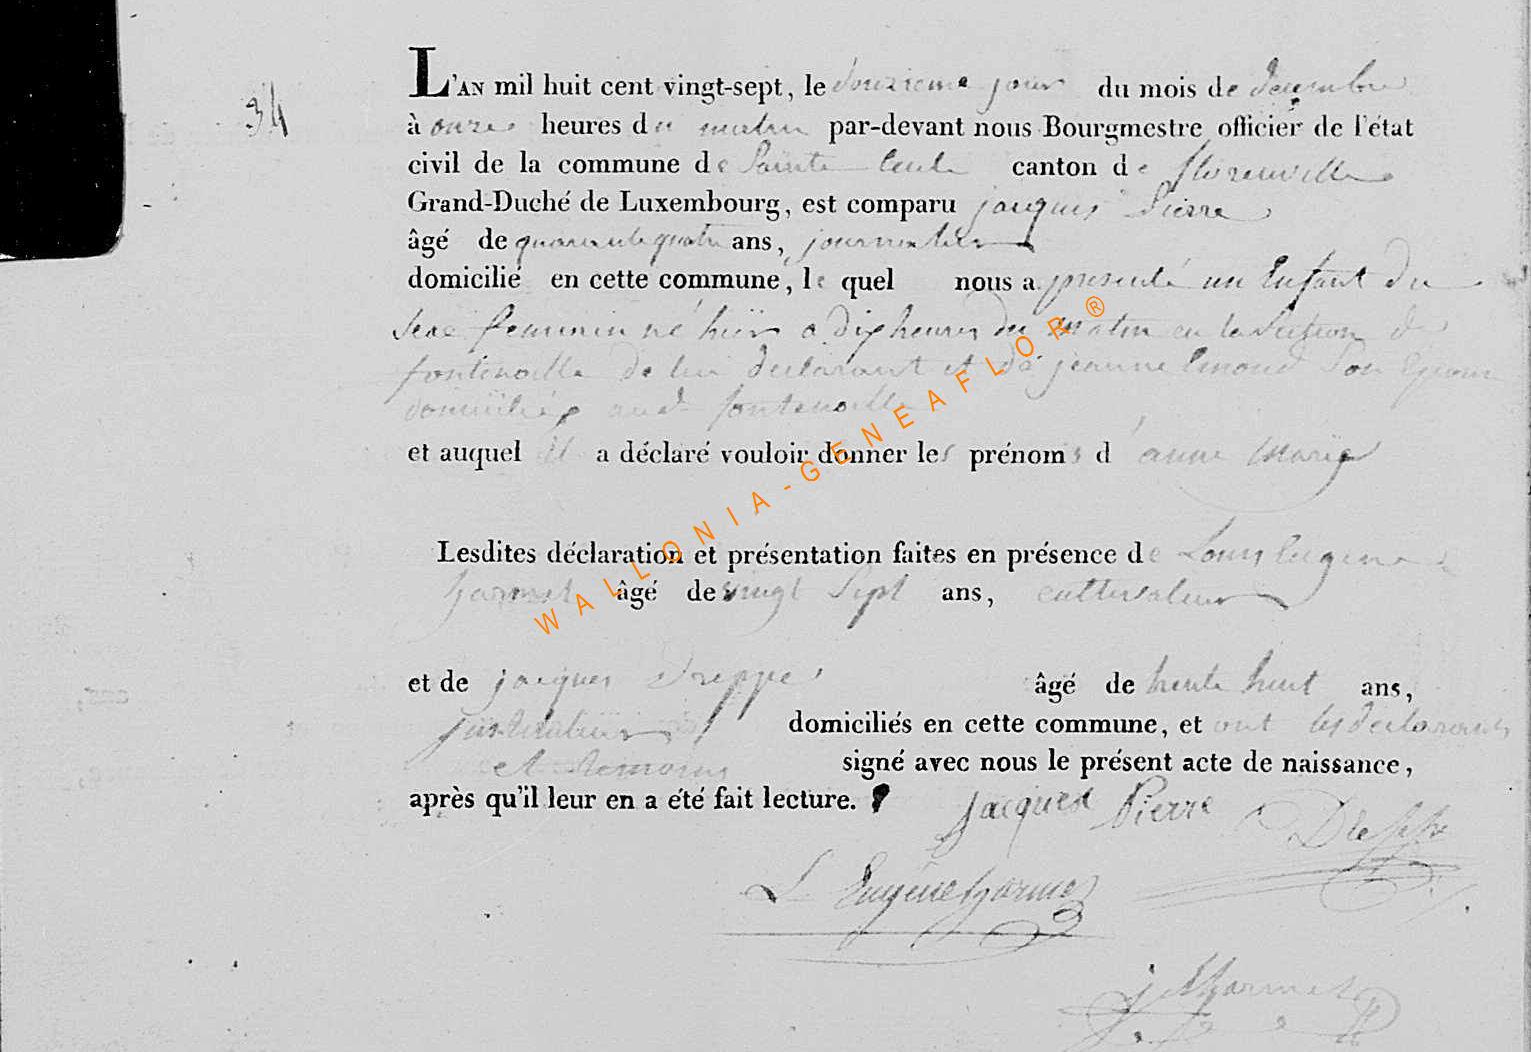 34
L'AN mil huit cent vingt-sept, le douzieme jour du mois de decembre
à onze heures du matin par-devant nous Bourgmestre officier de l'état
civil de la commune de Sainte Cecile canton de florenville
Grand-Duché de Luxembourg, est comparu jacques Pierre
âgé de quarante quatre ans, journalier
domicilié en cette commune, le quel nous a presenté un Enfant du
sexe feminin né hier a dix heures du matin en la Section de
fontenoille de lui declarant et de jeanne Son Epouse
domiciliés aud fontenoille
et auquel il a déclaré vouloir donner les prénoms d'anne marie
Lesdites déclaration et présentation faites en présence de Louis Eugene
harmel âgé de vingt Sept ans, cultivateur
et de jacques Dreppe âgé de trente huit ans,
instituteur domiciliés en cette commune, et ont les declarants
et temoins signé avec nous le présent acte de naissance,
après qu'il leur en a été fait lecture.
jacques Pierre Dreppe
L Eugène harmel
WALLONIA-GENEAFLOR®